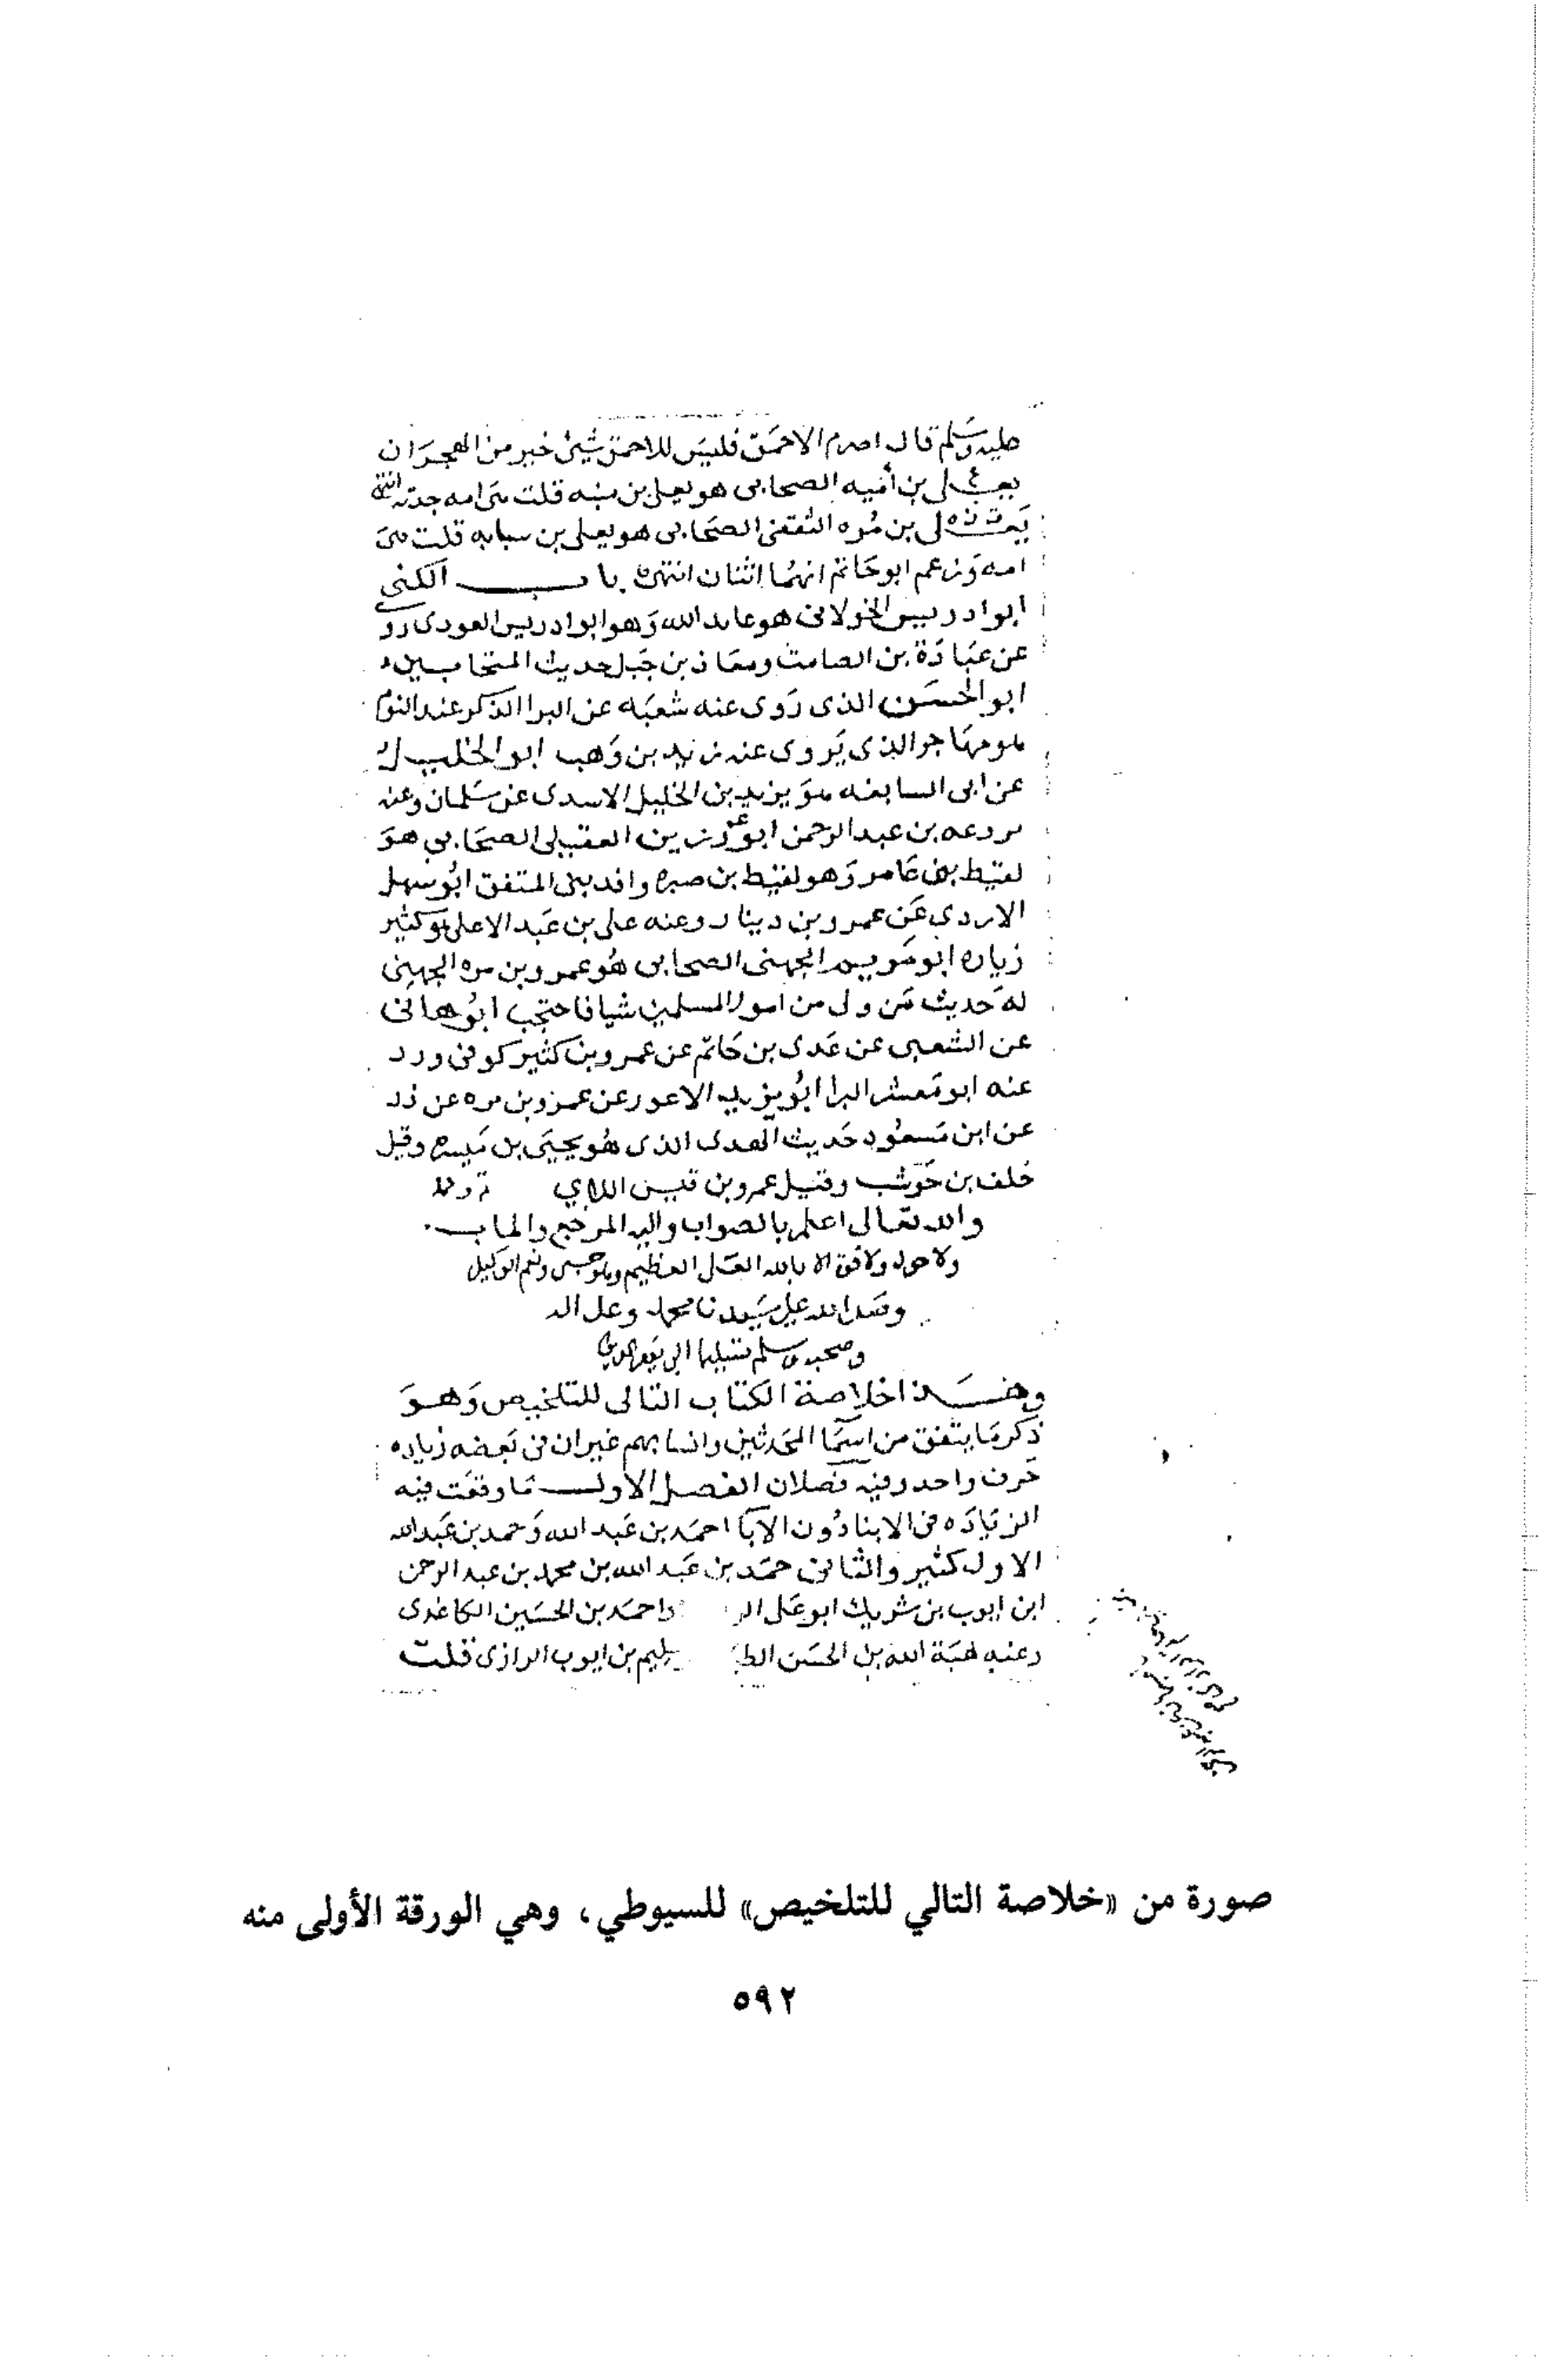 عليه وسلم قال اصرم الاحمق فليس للاحمق شيئ خير من الهجران
يعلى بن أميه الصحابى هو يعلى بن منيه قلت هى امه جدته انتهى
يعلى بن مُره الثقفى الصحابى هو يعلى بن سيابه قلت هى
امه وزعم ابو حاتم انهما اثنان انتهى باب الكنى
ابو ادريس الخولانى هو عايد الله وهو ابو ادريس العودى روى
عن عبادة بن الصامت ومعاذ بن جبل حديث المتحابين
ابو الحسن الذى روى عنه شعبه عن البرا الذكر عند النوم
هو مهاجر الذى يروى عنه زيد بن وهب ابو الخليل
عن ابى السابغه هو يزيد بن الخليل الاسدى عن سلمان وعنه
بن عبد الرحمن ابو رزين العقيلى الصحابى هو
لقيط بن عامر وهو لقيط بن صبره وافد بنى المتفق ابو سهل
الازدى عن عمرو بن دينار وعنه على بن عبد الاعلى هو كثير
زياده ابو مريم الجهنى الصحابى هو عمرو بن مره الجهنى
له حديث من ولى من امور المسلمين شيا فاحتجب ابو هانى
عن الشعبى عن عدى بن حاتم عن عمرو بن كثير كوفى
عنه ابو معشر البرا ابو يزيد الاعور عن عمرو بن مره عن
عن ابن مسعود حديث الهدى الذى هو يحيى بن ميسره وقيل
خلف بن حوشب وقيل عمرو بن قيس
والله تعالى اعلم بالصواب واليه المرجع والماب
ولا حول ولا قوة الا بالله العلى العظيم وهو حسبى ونعم الوكيل
وصلى الله على سيدنا محمد وعلى اله
وصحبه وسلم تسليما الى يوم الدين
وهذا خلاصة الكتاب التالى للتلخيص وهو
ذكر ما يتفق من اسما المحدثين وانسابهم غير ان فى بعضه زياده
حرف واحد وفيه فصلان الفصل الاول ما وقعت فيه
الزياده فى الابنا دون الابا احمد بن عبد الله وحمد بن عبد الله
الاول كثير والثانى حمد بن عبد الله بن محمد بن عبد الرحمن
ابن ايوب بن شريك ابو على واحمد بن الحسين الكاغدى
وعنه هبة الله بن الحسن سليم بن ايوب الرازى قلت
صورة من «خلاصة التالي للتلخيص» للسيوطي، وهي الورقة الأولى منه
٥٩٢